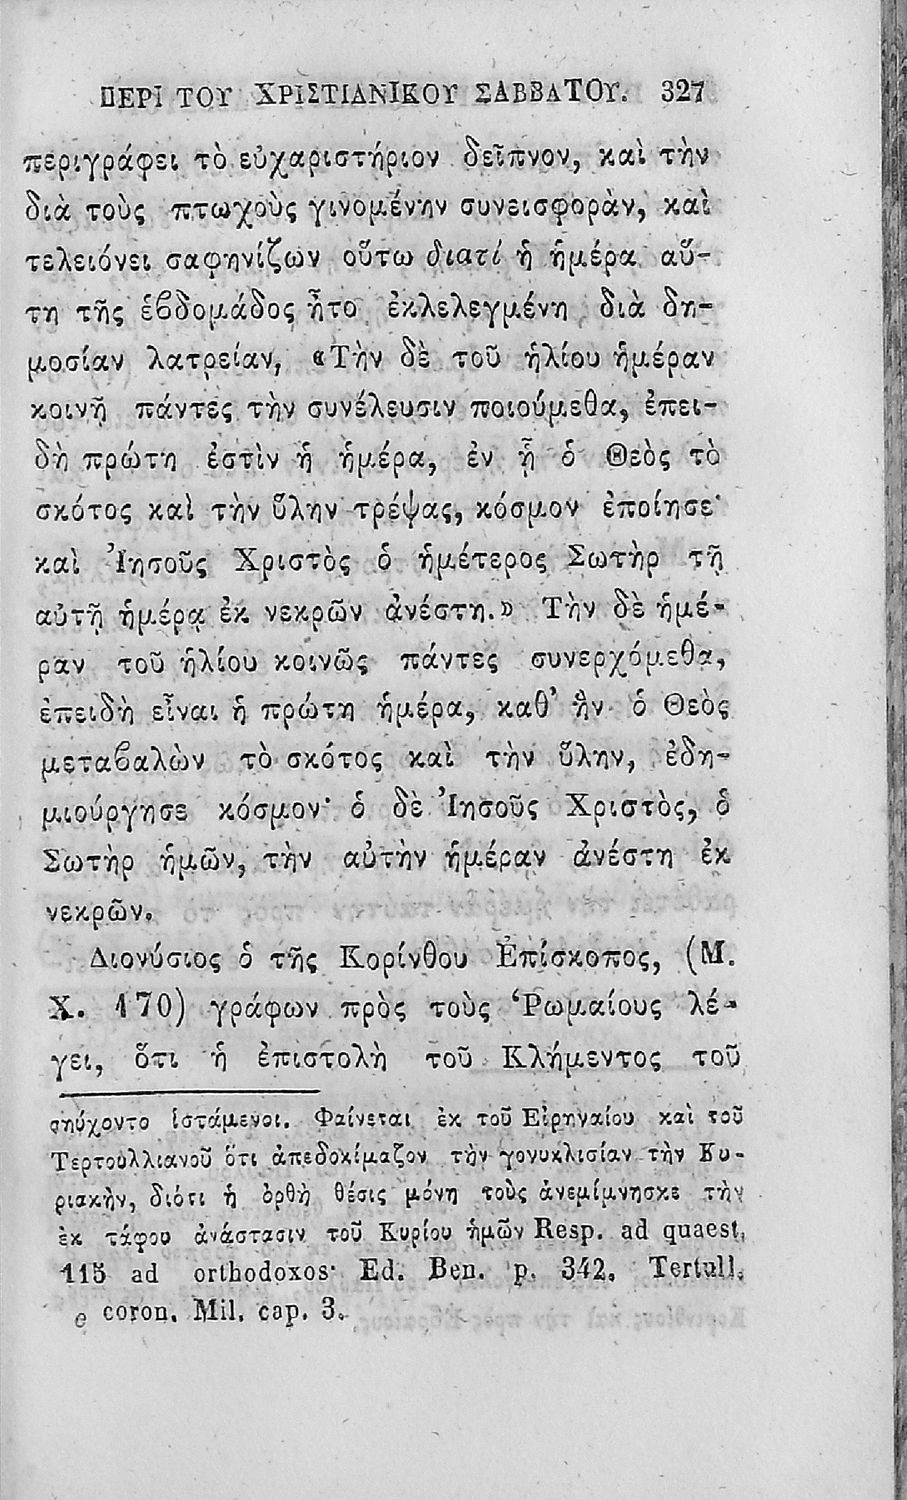 ΠΕΡΙ ΤΟΥ ΧΡΙΣΤΙΑΝΙΚΟΥ ΣΑΒΒΑΤΟΥ. 327
περιγράφει τὸ εὐχαριστήριον δεῖπνον, καὶ τὴν
διὰ τοὺς πτωχοὺς γινομένην συνεισφορὰν, καὶ
τελειόνει σαφηνίζων οὕτω διατί ἡ ἡμέρα αὕ-
τη τῆς ἑβδομάδος ἦτο ἐκλελεγμένη διὰ δη-
μοσίαν λατρείαν, «Τὴν δὲ τοῦ ἡλίου ἡμέραν
κοινῇ πάντες τὴν συνέλευσιν ποιούμεθα, ἐπει-
δὴ πρώτη ἐστὶν ἡ ἡμέρα, ἐν ᾗ ὁ Θεὸς τὸ
σκότος καὶ τὴν ὕλην τρέψας, κόσμον ἐποίησε·
καὶ Ἰησοῦς Χριστὸς ὁ ἡμέτερος Σωτὴρ τῇ
αὐτῇ ἡμέρᾳ ἐκ νεκρῶν ἀνέστη.» Τὴν δὲ ἡμέ-
ραν τοῦ ἡλίου κοινῶς πάντες συνερχόμεθα,
ἐπειδὴ εἶναι ἡ πρώτη ἡμέρα, καθ' ἣν ὁ Θεὸς
μεταβαλὼν τὸ σκότος καὶ τὴν ὕλην, ἐδη-
μιούργησε κόσμον· ὁ δὲ Ἰησοῦς Χριστὸς, ὁ
Σωτὴρ ἡμῶν, τὴν αὐτὴν ἡμέραν ἀνέστη ἐκ
νεκρῶν.
Διονύσιος ὁ τῆς Κορίνθου Ἐπίσκοπος, (Μ.
Χ. 170) γράφων πρὸς τοὺς Ῥωμαίους λέ-
γει, ὅτι ἡ ἐπιστολὴ τοῦ Κλήμεντος τοῦ
σηύχοντο ἱστάμενοι. Φαίνεται ἐκ τοῦ Εἰρηναίου καὶ τοῦ
Τερτουλλιανοῦ ὅτι ἀπεδοκίμαζον τὴν γονυκλισίαν τὴν Κυ-
ριακὴν, διότι ἡ ὀρθὴ θέσις μόνη τοὺς ἀνεμίμνησκε τὴν
ἐκ τάφου ἀνάστασιν τοῦ Κυρίου ἡμῶν Resp. ad quaest,
115 ad orthodoxos· Ed. Ben. p. 342. Tertull.
e coron. Mil. cap. 3.